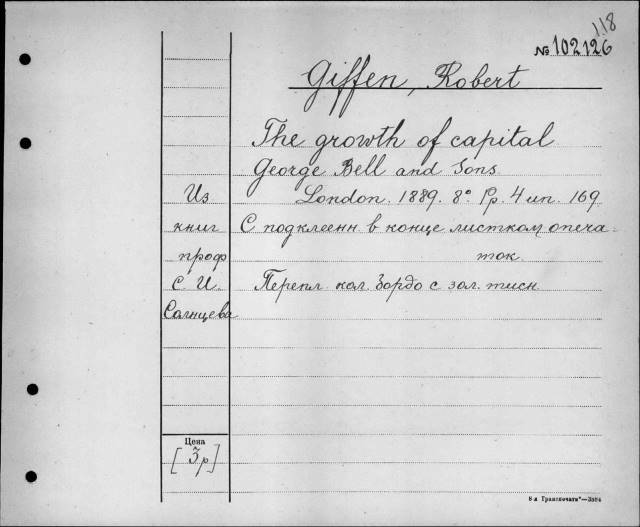 118
№ 102126
Giffen, Robert
The growth of capital
George Bell and Sons
London. 1889. 8° Pp. 4 нп. 169.
С подклеенн. в конце листком опеча-
ток.
Перепл. кол. бордо с зол. тисн.
Из
книг
проф
С И
Солнцева
Цена
[3р]
8-я Транспечать"—3584